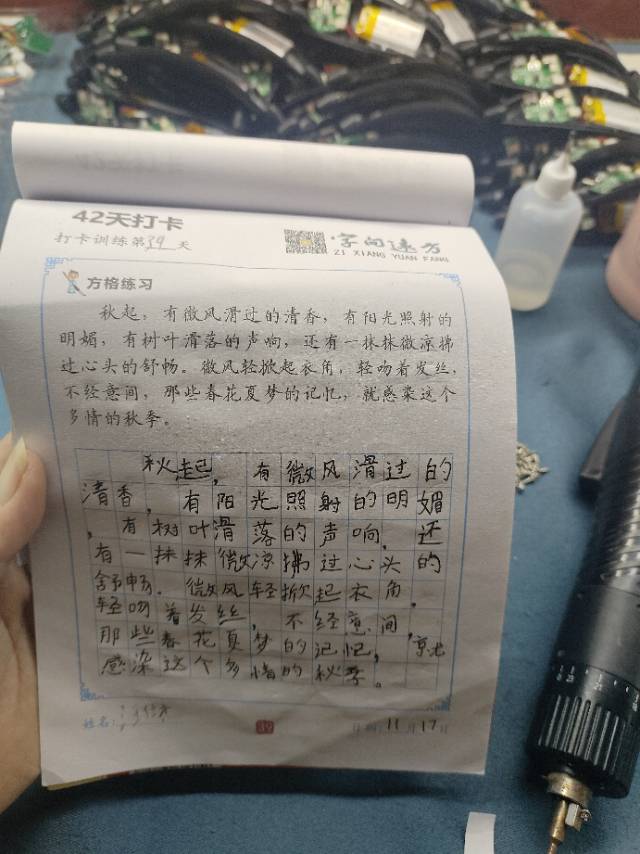 42天打卡
打卡训练第39天
字向远方
ZI XIANG YUAN FANG
方格练习
秋起，有微风滑过的清香，有阳光照射的
明媚，有树叶滑落的声响，还有一抹抹微凉拂
过心头的舒畅。微风轻掀起衣角，轻吻着发丝，
不经意间，那些春花夏梦的记忆，就感染这个
多情的秋季。
秋起，有微风滑过的
清香，有阳光照射的明媚
，有树叶滑落的声响，还
有一抹抹微凉拂过心头的
舒畅。微风轻掀起衣角，
轻吻着发丝，不经意间，
那些春花夏梦的记忆，就
感染这个多情的秋季。
姓名：
39
日期：11月17日